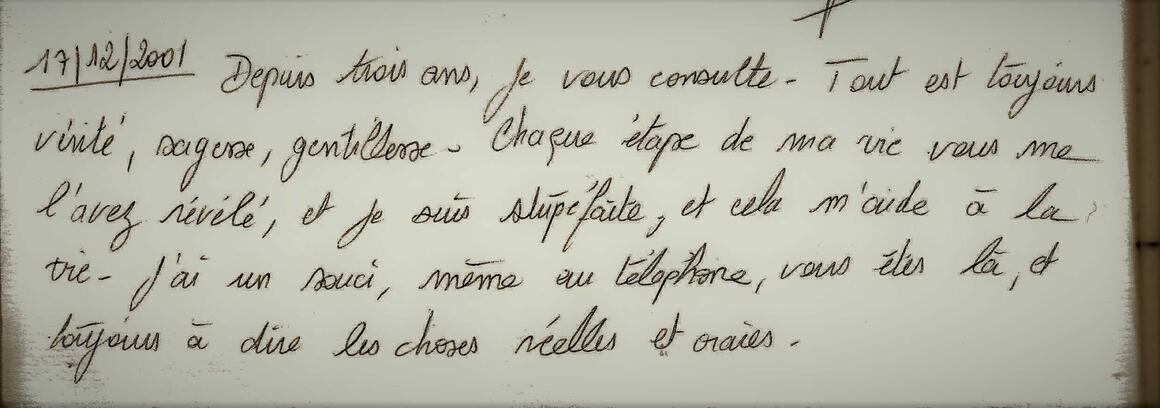 17/12/2001 Depuis trois ans, je vous consulte - Tout est toujours
vérité, sagesse, gentillesse - Chaque étape de ma vie vous me
l'avez révélé, et je suis stupéfaite, et cela m'aide à la
vie - J'ai un souci, même au téléphone, vous êtes là, et
toujours à dire les choses réelles et vraies.